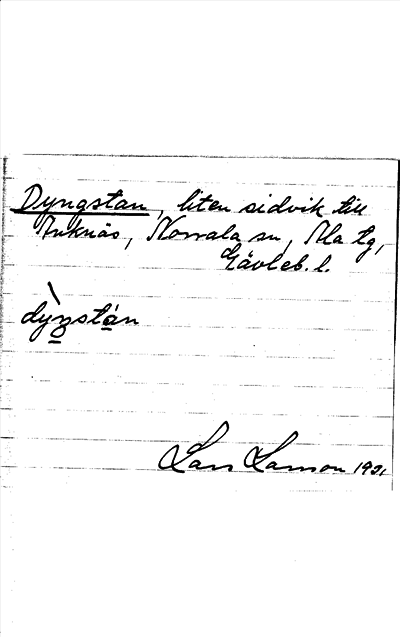 Dyngstan, liten sidvik till
Anknäs, Norrala sn, Ala tg,
Gävleb. l.
dyŋstan
Lars Larsson 1921